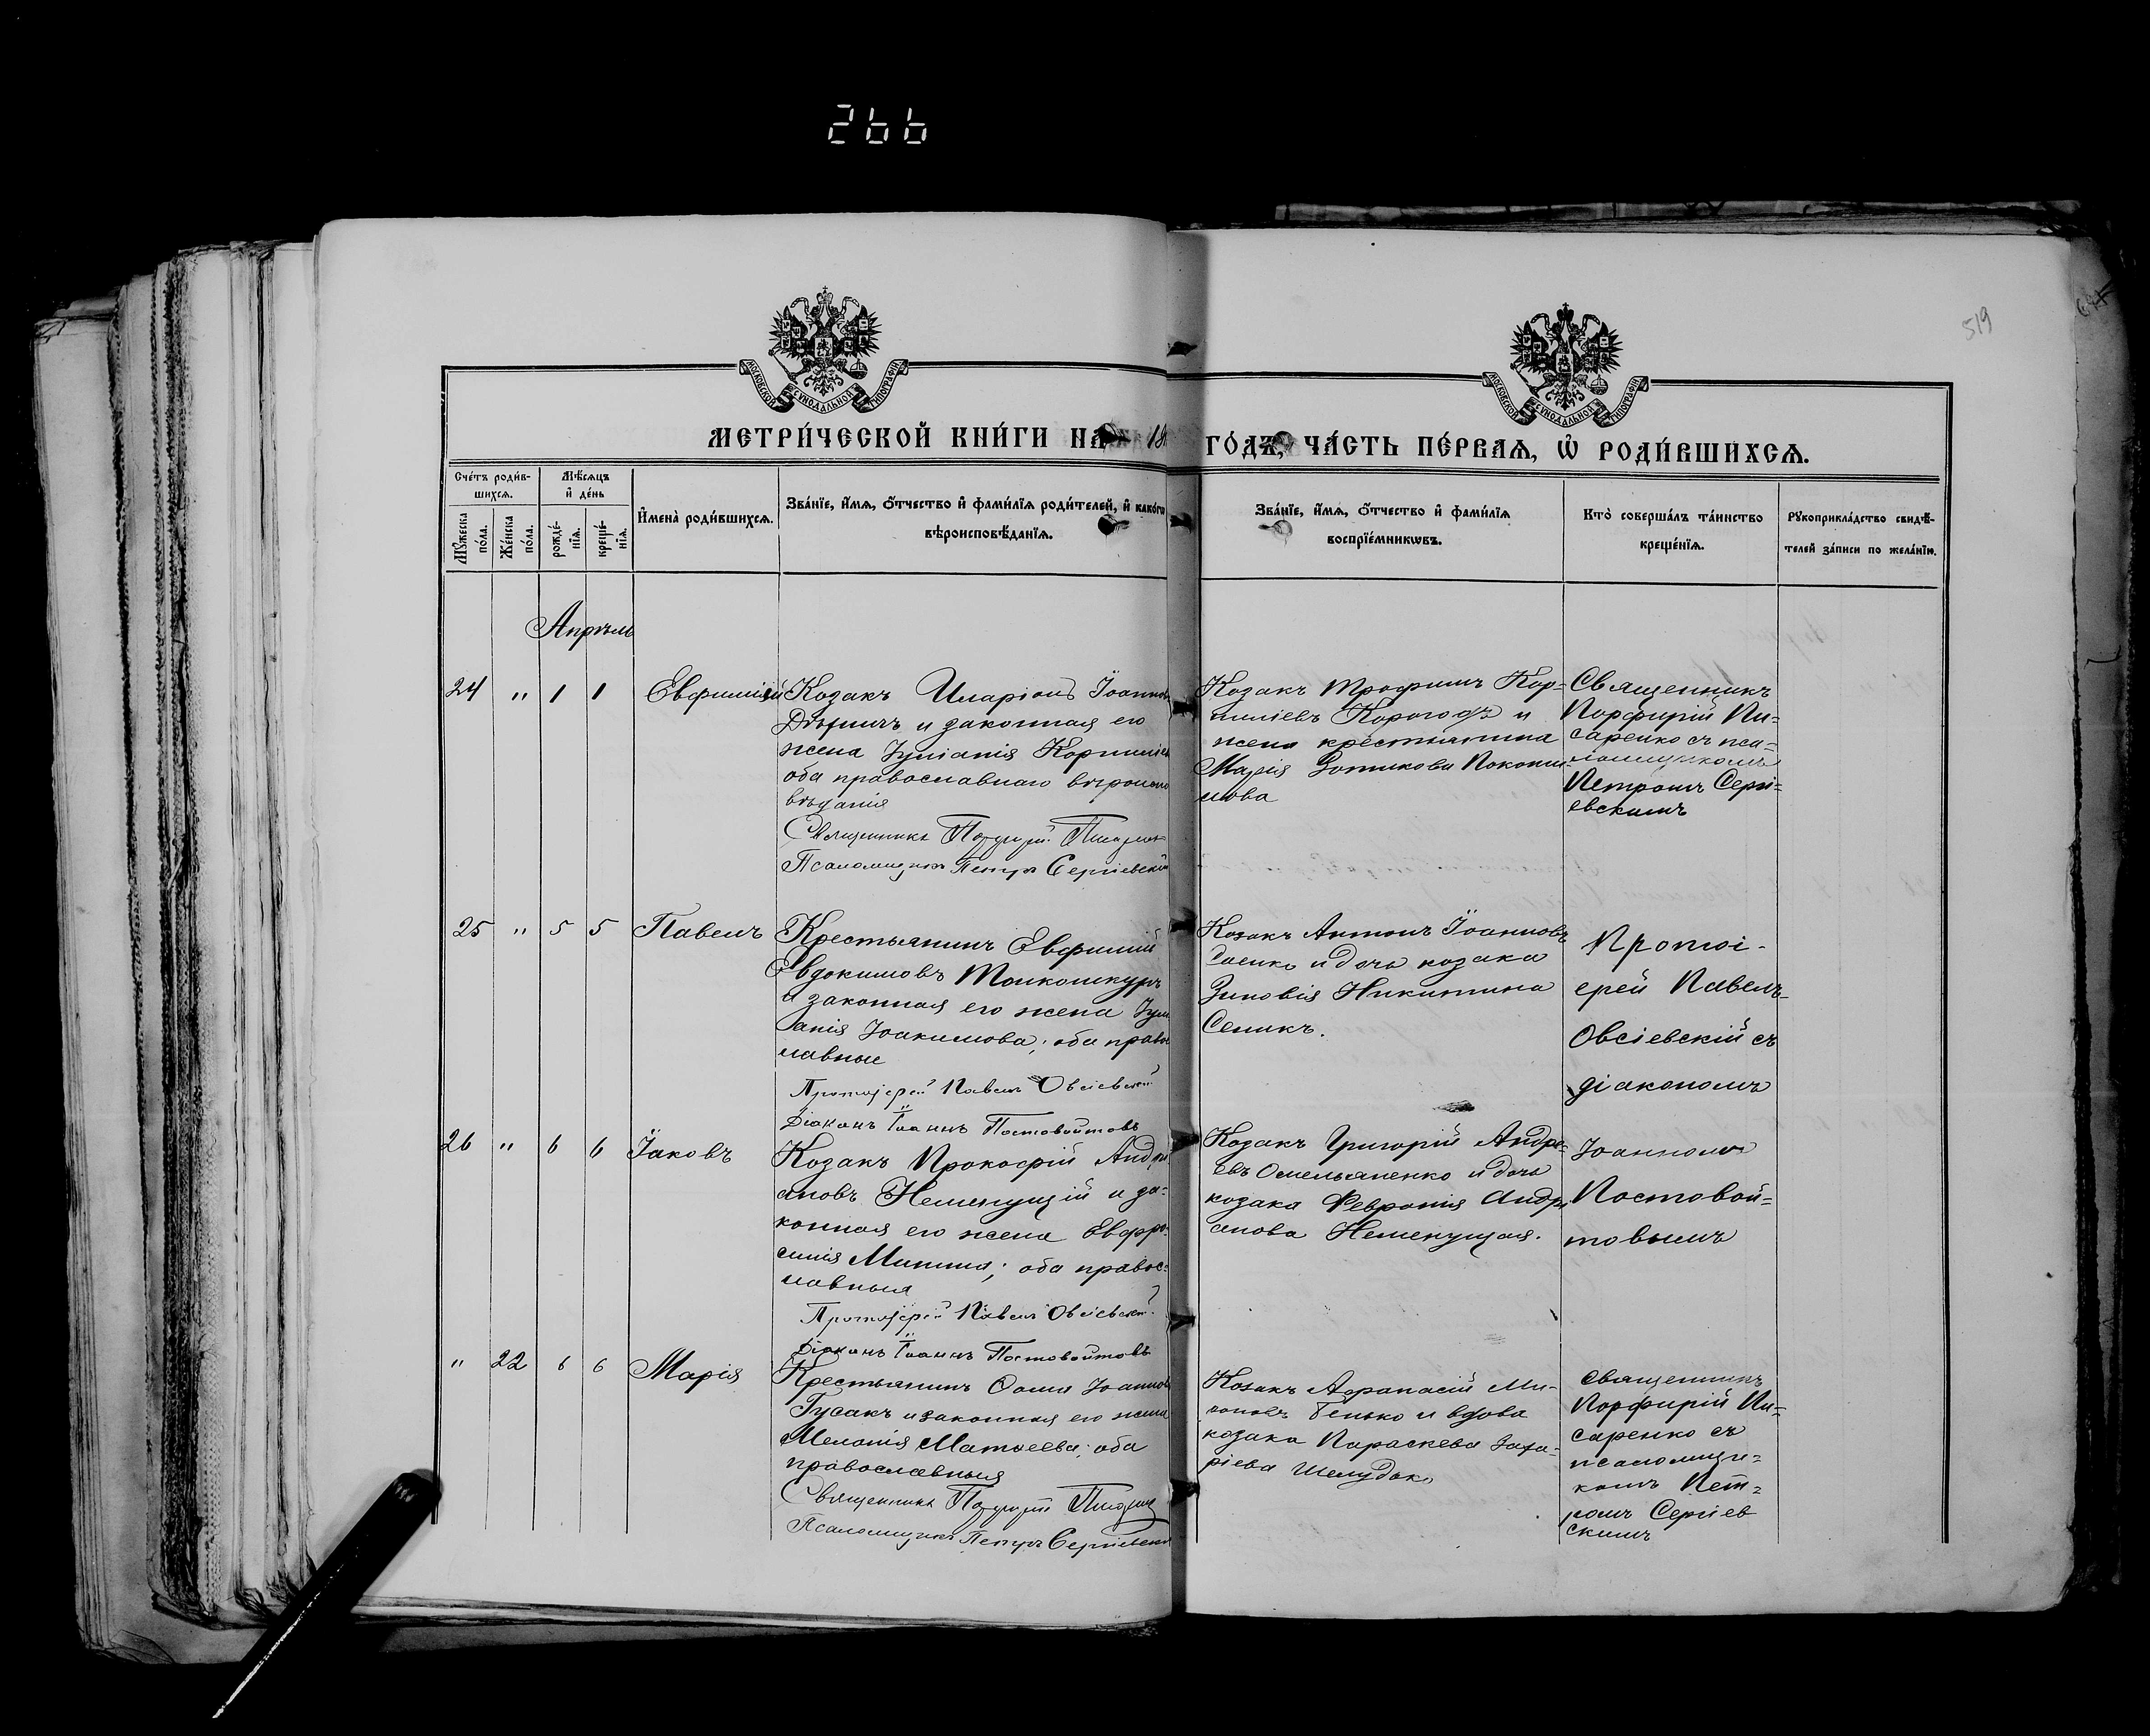 266
519
МОСКОВСКОЙ СѴНОДАЛЬНОЙ ТИПОГРАФІИ
МОСКОВСКОЙ СѴНОДАЛЬНОЙ ТИПОГРАФІИ
МЕТРИ́ЧЕСКОЙ КНИ́ГИ НА 18
ГО́ДЪ, ЧА́СТЬ ПЕ́РВАѦ, Ѡ҆ РОДИ́ВШИХСѦ.
Сче́тъ роди́в-
шихсѧ.
Мѣ́сѧцъ
и҆ де́нь
Мꙋ́жеска
по́ла.
Же́нска
по́ла.
рожде́-
нїѧ.
креще́-
нїѧ.
И҆мена̀ роди́вшихсѧ.
Зва́нїе, и҆́мѧ, ѻ҆́тчество и҆ фами́лїѧ роди́телей, и҆ како́гѡ
вѣроисповѣ́данїѧ.
Зва́нїе, и҆́мѧ, ѻ҆́тчество и҆ фами́лїѧ
воспрїе́мникѡвъ.
Кто̀ соверша́лъ та́инство
креще́нїѧ.
Рꙋкоприкла́дство свидѣ́-
телей за́писи по жела́нїю.
Апрѣль
24 " 1 1 Евфимій
Козакъ Иларіонъ Іоаннов
и законная его
жена Іуліанія Корниліев
оба православнаго вѣроиспо
вѣданія
Священникъ Порфирій Писарен
Псаломщикъ Петръ Сергіевскій
Козакъ Трофимъ Кор=
ниліевъ Корогодъ и
жена крестьянина
Марія Зотикова
Священникъ
Порфирій Пи=
саренко съ пса=
ломщикомъ
Петромъ Серги=
евскимъ
25 " 5 5 Павелъ
Крестьянинъ Евфимій
Евдокимовъ Толкошкуръ
и законная его жена Іули
анія Іоакимова; оба правос
лавные
Протоіерей Павелъ Овсіевскій
Діаконъ Іоаннъ Постовойтовъ
Козакъ Антонъ Іоанновъ
и дочь козака
Зиновія Никитина
Сеникъ.
Протоі-
ерей Павелъ
Овсіевскій съ
діакономъ
26 " 6 6 Іаковъ
Козакъ Прокофій Андрі
ановъ Неменущій и за=
конная его жена Евфро
синія Минина; оба правос=
лавныя
Протоіерей Павелъ Овсіевскій
Діаконъ Іоаннъ Постовойтовъ
Козакъ Григорій Андре=
евъ Омельяненко и дочь
козака Февронія Андрі
анова Неменущая.
Іоанномъ
Постовой=
товымъ
" 22 6 6 Марія
Крестьянинъ Ѳома Іоаннов
Гусакъ и законная его жена
Меланія Матѳеева; оба
православныя
Священникъ Порфирій Писарен
Псаломщикъ Петръ Сергіевскій
Козакъ Афанасій Ми-
роновъ Генько и вдова
козака Параскева Заха-
ріева Шелудько
Священникъ
Порфирій Пи=
саренко съ
псаломщи=
комъ Пет=
ромъ Сергіев
скимъ